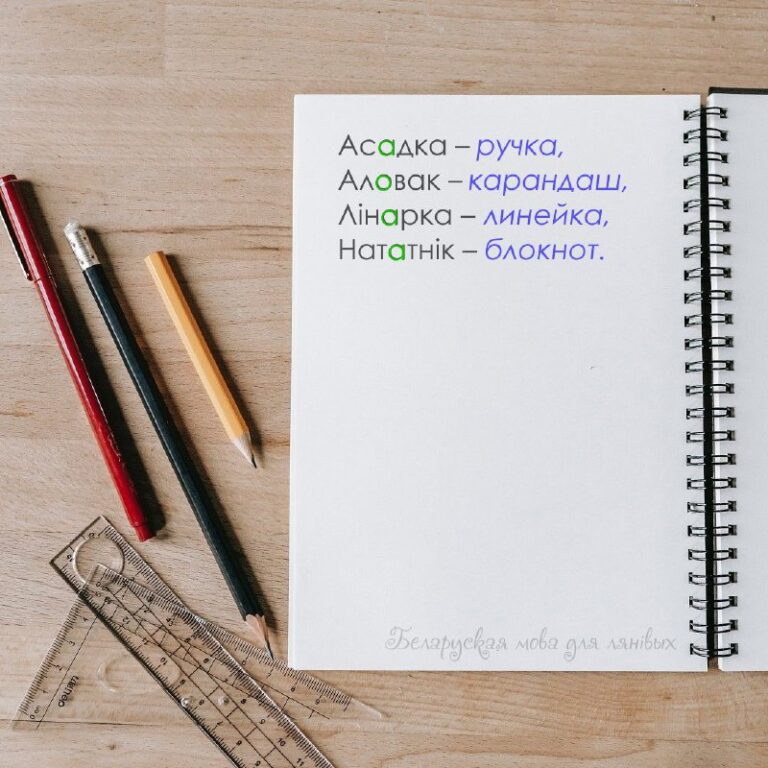 Асадка – ручка,
Аловак – карандаш,
Лінарка – линейка,
Нататнік – блокнот.
Беларуская мова для лянівых
deli